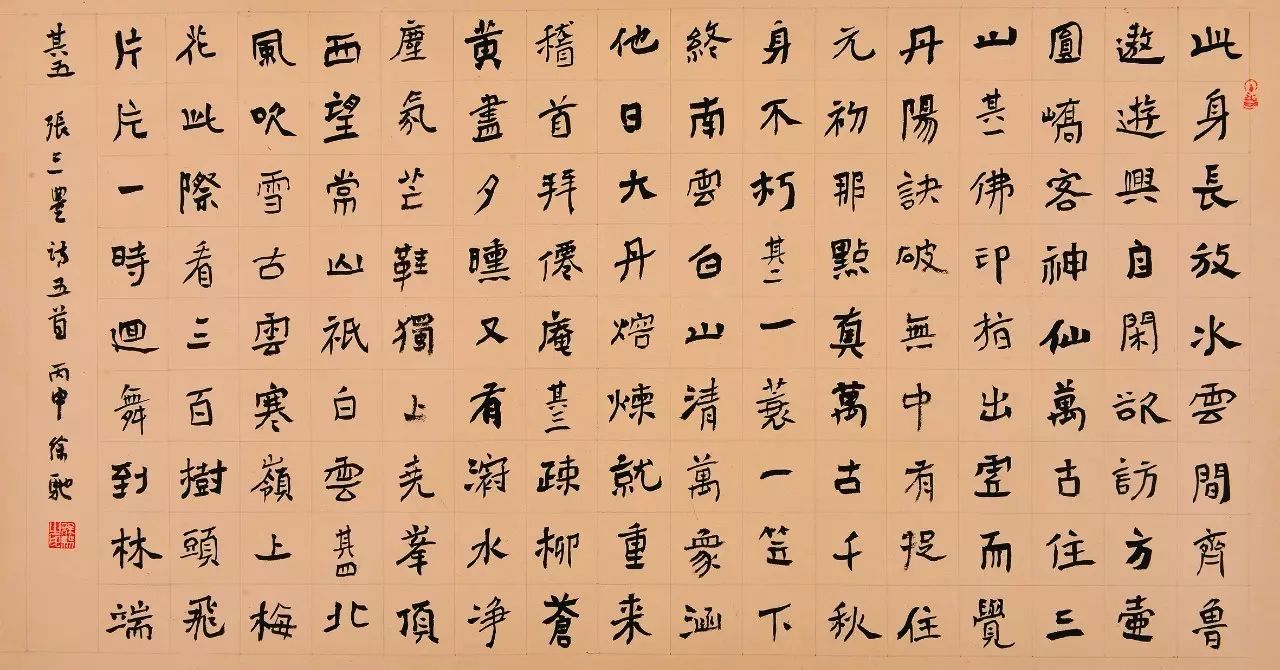 此身長放水雲間齊魯
遨遊興自閑欲訪方壺
圓嶠客神仙萬古住三
山其一佛印指出虛而覺
丹陽訣破無中有捉住
元初那點真萬古千秋
身不朽其二一蓑一笠下
終南雲白山清萬象涵
他日大丹熔煉就重来
稽首拜僊庵其三疎柳蒼
黄盡夕曛又有水净
塵氛芒鞋獨上堯峯頂
西望常山祇白雲其四北
風吹雪古雲寒嶺上梅
花此際看三百樹頭飛
片片一時迴舞到林端
其五 張三豐詩五首 丙申 徐馳